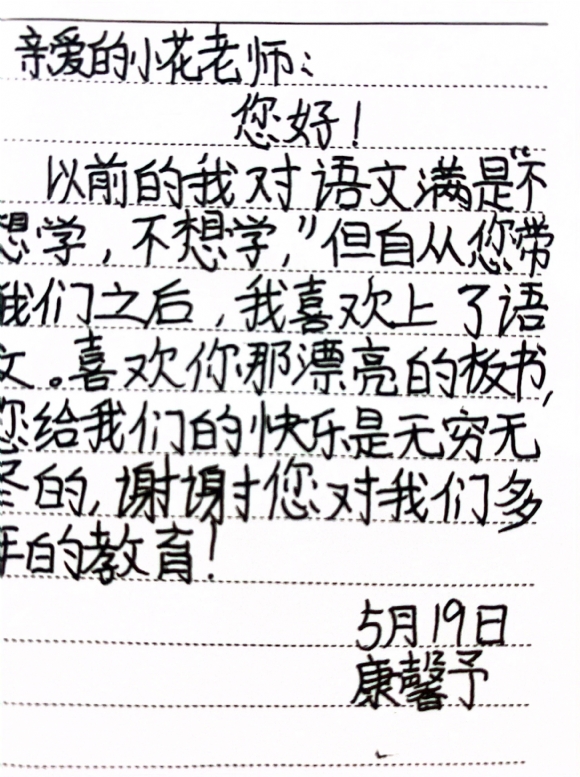 亲爱的小花老师：
您好！
以前的我对语文满是“不
想学，不想学，”但自从您带
我们之后，我喜欢上了语
文。喜欢你那漂亮的板书，
您给我们的快乐是无穷无
尽的，谢谢您对我们多
年的教育！
5月19日
康馨予